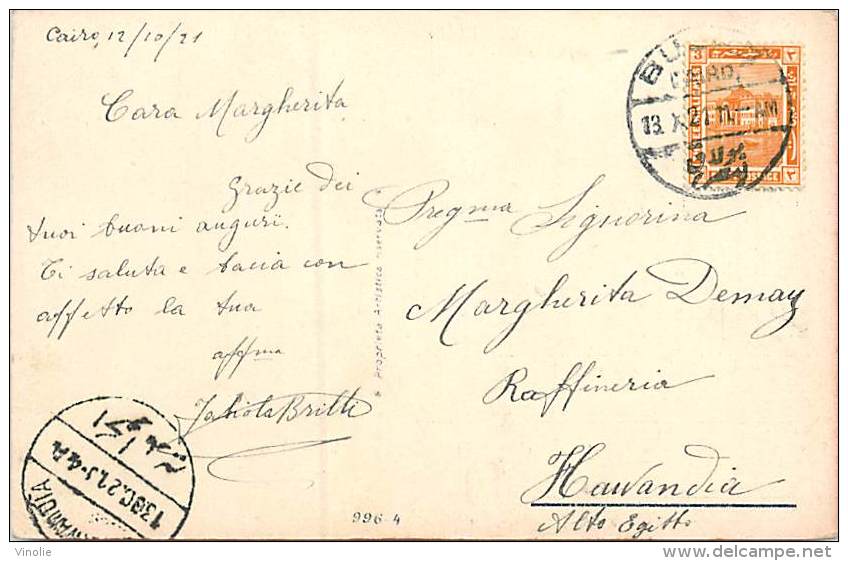 Cairo, 12/10/21
Cara Margherita
Grazie dei
tuoi buoni auguri.
Ti saluta e bacia con
affetto la tua
affma
Britti
© Proprietà Artistica riservata
Pregma Signorina
Margherita Demay
Raffineria
Hawandia
Alto Egitto
CAIRO
13. X. 21. 11. AM
3
996-4
Vinolie
delcampe.net